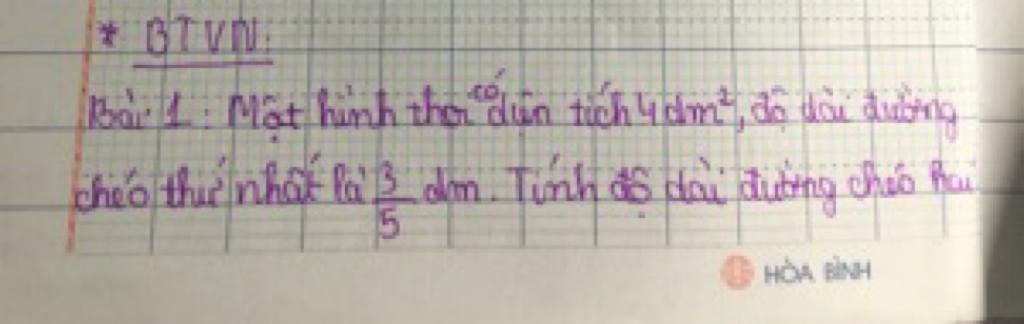 * BTVN:
Bài 1: Một hình thoi có diện tích 4 dm², độ dài đường
chéo thứ nhất là 3/5 dm. Tính độ dài đường chéo hai
HÒA BÌNH